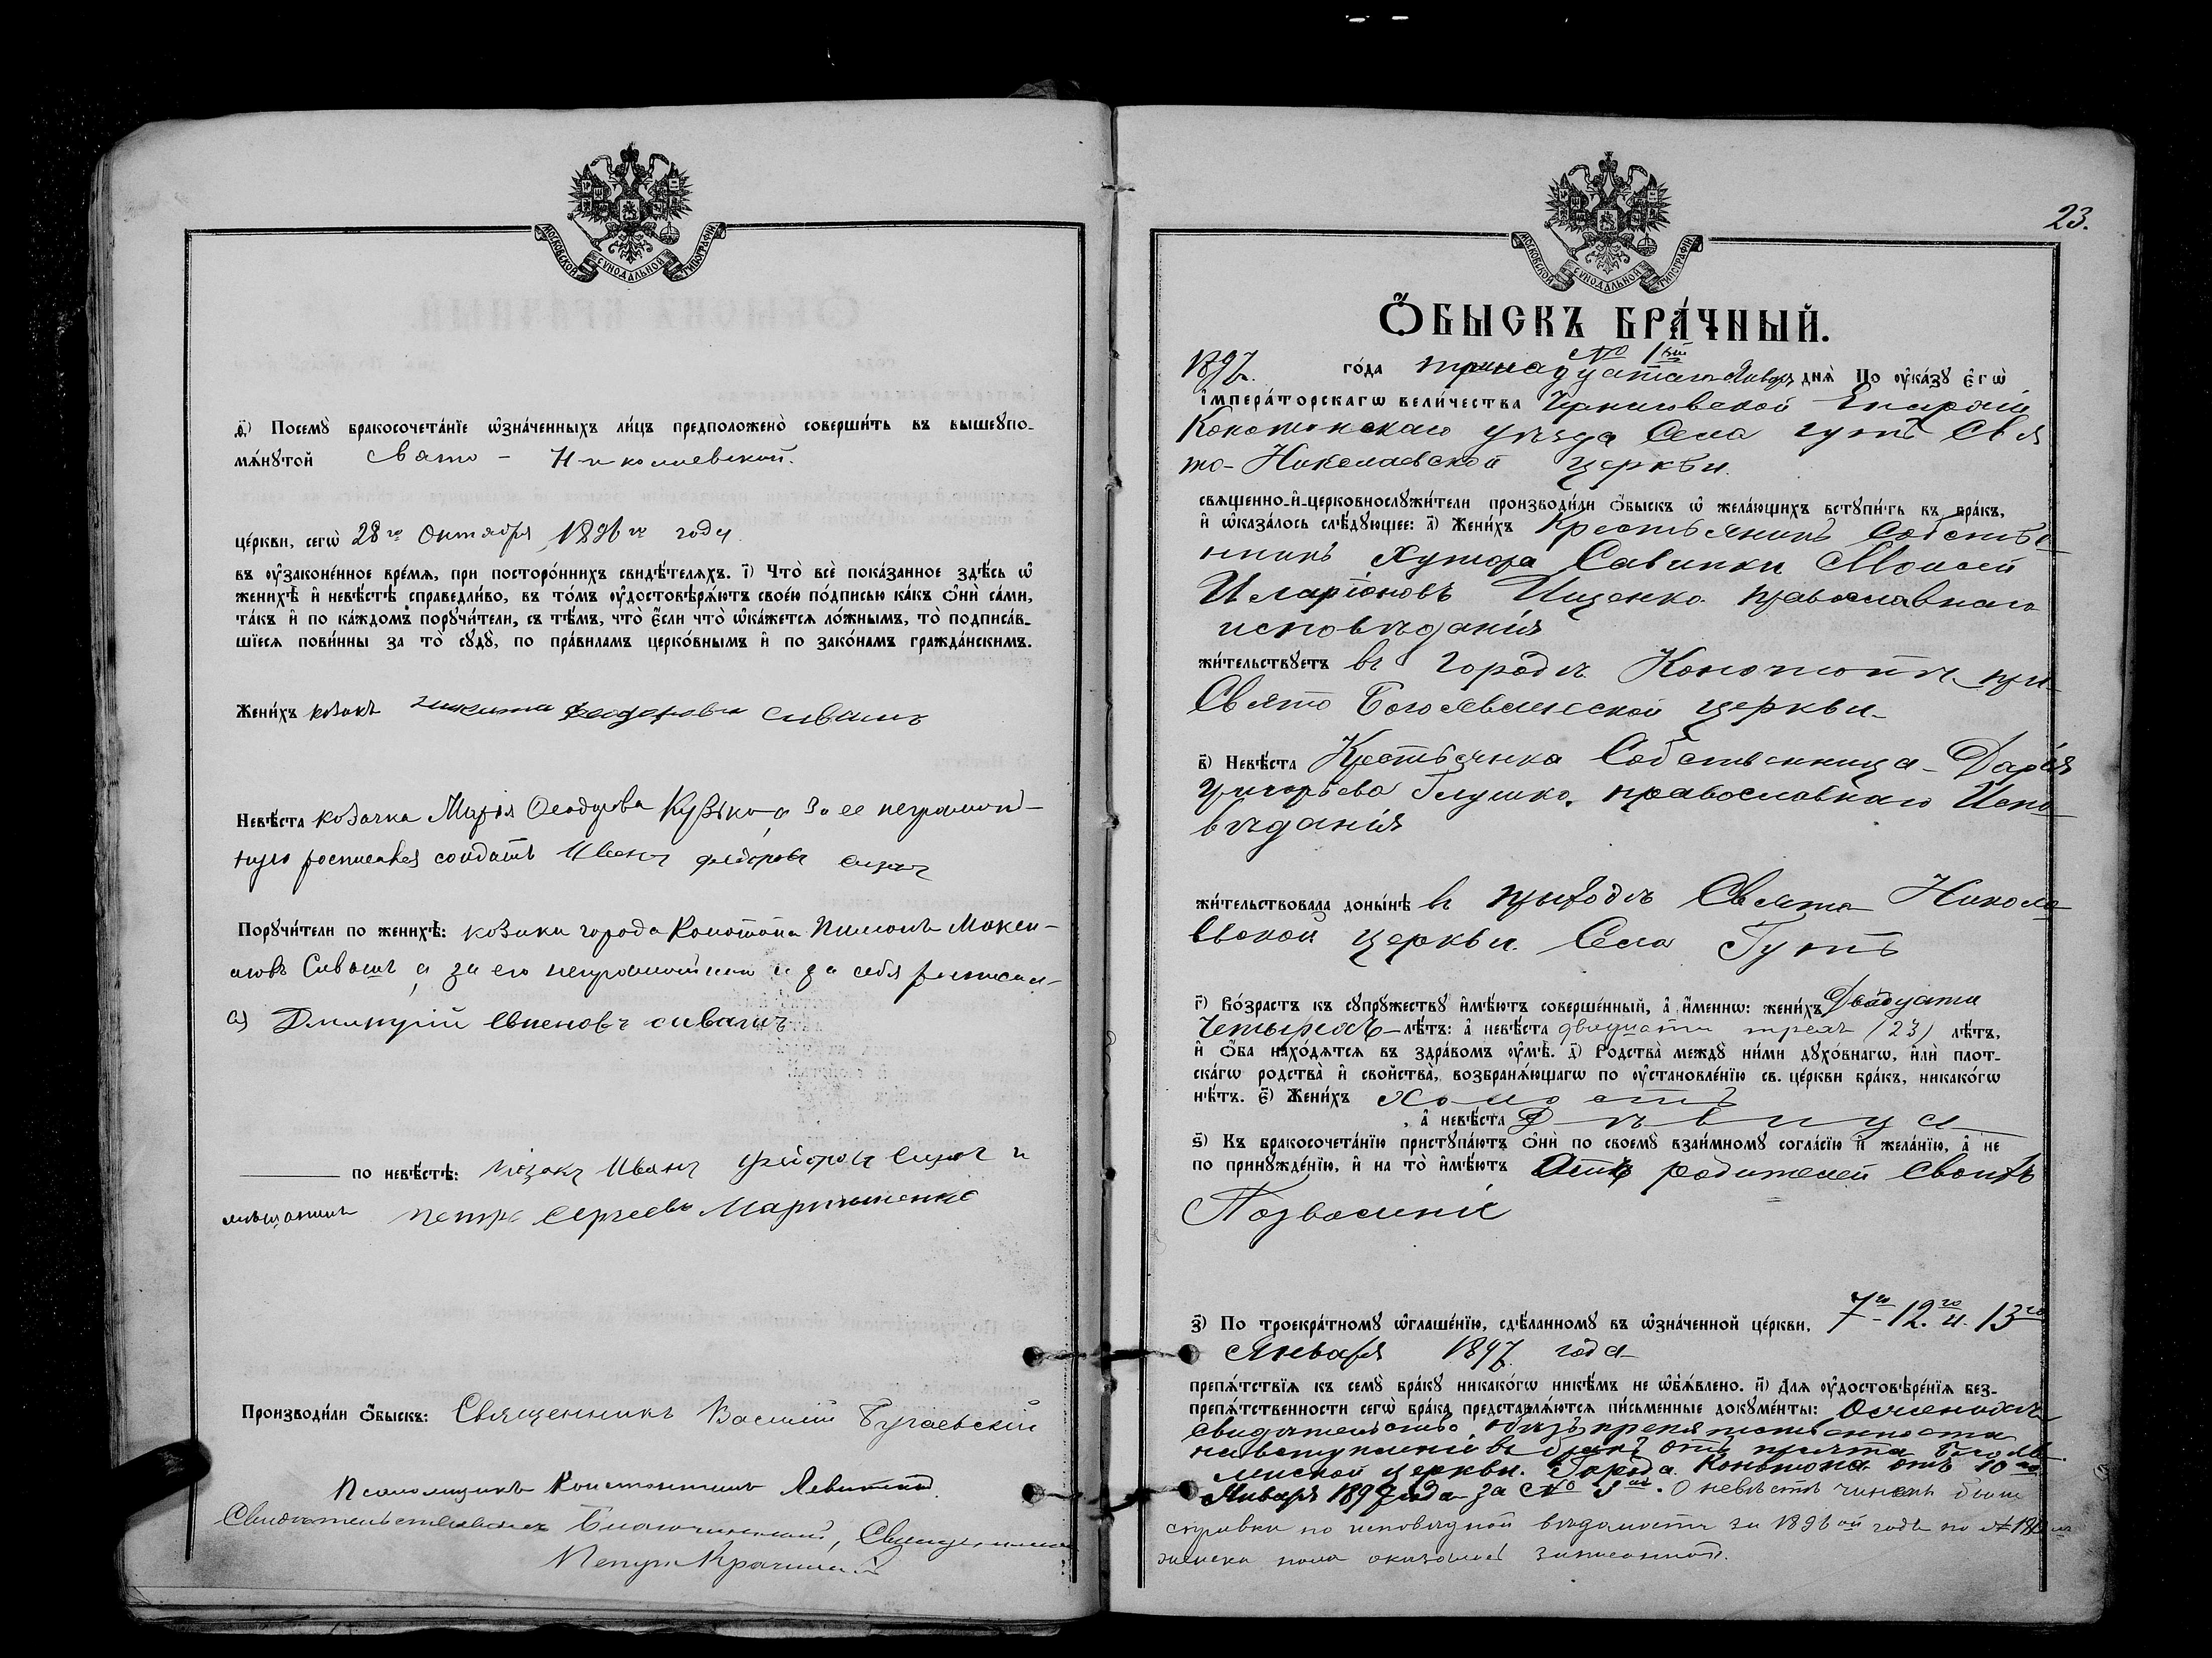 МОСКОВСКОЙ СѴНОДАЛЬНОЙ ТИПОГРАФІИ
ѳ҃) Посемꙋ̀ бракосочета́нїе ѡ҆зна́ченныхъ ли́цъ предположено̀ соверши́ть въ вышеꙋпо-
мѧ́нꙋтой Свято - Николаевской.
це́ркви, сегѡ̀ 28го Октября 1896го году
въ ᲂу҆законе́нное вре́мѧ, при посторо́ннихъ свидѣ́телѧхъ. і҃) Что̀ всѐ пока́занное здѣ́сь ѡ҆
женихѣ̀ и҆ невѣ́стѣ справедли́во, въ то́мъ ᲂу҆достовѣрѧ́ютъ свое́ю по́дписью ка́къ ѻ҆нѝ са́ми,
та́къ и҆ по ка́ждомꙋ порꙋчи́тели, съ тѣ́мъ, что̀ є҆́сли что̀ ѡ҆ка́жетсѧ ло́жнымъ, то̀ подписа́в-
шїесѧ пови́нны за то̀ сꙋдꙋ̀, по пра́виламъ церко́внымъ и҆ по зако́намъ гражда́нскимъ.
Жени́хъ козакъ Никита Феодоровъ Сивашъ
Невѣ́ста козачка Марія Феодорова Кузько а За ее неграмот-
ную росписался солдатъ Иванъ Фёдоровъ
Порꙋчи́тели по женихѣ̀: козаки города Конотопа Пименъ
Сивашъ а за его неграмотнаго и за себя
Дмитрій Евменовъ сивашъ
по невѣ́стѣ: козакъ Иванъ Фёдоровъ и
мѣщанинъ Петръ Сергеевъ Мартыненко
Производи́ли ѻ҆́быскъ: Священникъ Василій Бугаевскій
Псаломщикъ Константинъ Левитскій.
Свидѣтельствовалъ Благочинный, Священникъ
Петръ
23.
МОСКОВСКОЙ СѴНОДАЛЬНОЙ ТИПОГРАФІИ
Ѻ҆́БЫСКЪ БРА́ЧНЫЙ.
№ 1й
1897. го́да тринадцатаго Января днѧ̀ По ᲂу҆ка́зꙋ є҆гѡ̀
і҆мпера́торскагѡ вели́чества Черниговской Епархіи
Конотопскаго уѣзда Села Гутъ Свя
то-Николаевской церкви.
свѧщенно-и҆-церковнослꙋжи́тели производи́ли ѻ҆́быскъ ѡ҆ жела́ющихъ встꙋпи́ть въ бра́къ,
и҆ ѡ҆каза́лось слѣ́дꙋющее: а҃) Жени́хъ Крестьянинъ Собстве-
нникъ Хутора Савинки Моисей
Иларіоновъ Ищенко православнаго
исповѣданія
жи́тельствꙋетъ въ городѣ Конотопѣ при
Свято Богоявленской церкви-
в҃) Невѣ́ста Крестьянка Собственница - Дарья
Григорьева Глушко, православнаго Испо
вѣданія
жи́тельствовала доны́нѣ въ приходѣ Свято Никола
евской церкви. Села Гутъ
г҃) Во́зрастъ къ сꙋпрꙋ́жествꙋ и҆мѣ́ютъ соверше́нный, а҆ и҆́меннѡ: жени́хъ Двадцати
Четырехъ - лѣ́тъ: а҆ невѣ́ста двадцати трехъ (23) лѣ́тъ,
и҆ ѻ҆́ба нахо́дѧтсѧ въ здра́вомъ ᲂу҆мѣ̀. д҃) Родства̀ междꙋ̀ ни́ми дꙋхо́внагѡ, и҆лѝ плот-
ска́гѡ родства̀ и҆ свойства̀, возбранѧ́ющагѡ по ᲂу҆становле́нїю св. це́ркви бра́къ, никако́гѡ
нѣ́тъ. є҃) Жени́хъ Холостъ
, а҆ невѣ́ста Дѣвица
ѕ҃) Къ бракосочета́нїю пристꙋпа́ютъ ѻ҆нѝ по своемꙋ̀ взаи́мномꙋ согла́сїю и҆ жела́нїю, а҆ не
по принꙋжде́нїю, и҆ на то̀ и҆мѣ́ютъ Отъ родителей своихъ
Позволеніе
з҃) По троекра́тномꙋ ѡ҆глаше́нїю, сдѣ́ланномꙋ въ ѡ҆зна́ченной це́ркви, 7го-12го и 13го
Января 1897 года-
препѧ́тствїѧ къ семꙋ̀ бра́кꙋ никако́гѡ никѣ́мъ не ѡ҆б̾ѧ́влено. и҃) Длѧ ᲂу҆достовѣре́нїѧ без-
препѧ́тственности сегѡ̀ бра́ка представлѧ́ютсѧ пи́сьменные докꙋме́нты: О женихѣ
свидетельство о безпрепятственности
на вступленіе въ бракъ отъ причта Богояв
ленской церкви. Города Конотопа отъ 10го
Января 1897 года за № 3. О невѣстѣ чинена была
справка по исповѣдной вѣдомости за 1896ой годъ по №
женска пола оказалась записанной.